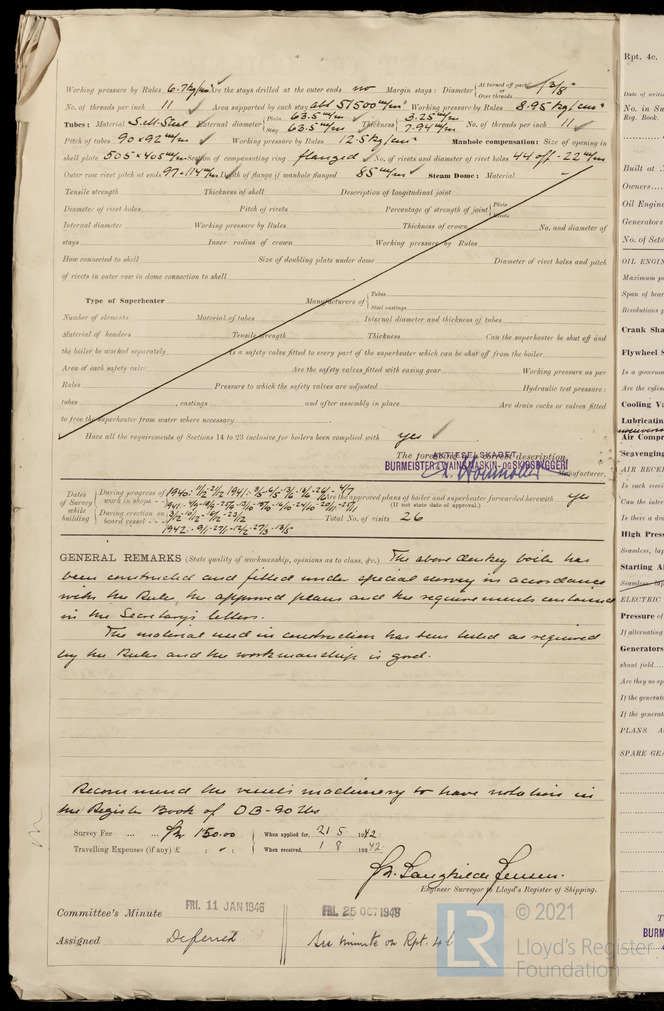 Working pressure by Rules 6.7 kg/cm² Are the stays drilled at the outer ends no Margin stays: Diameter { At turned off part, or Over threads 1 3/8"
No. of threads per inch 11 Area supported by each stay abt 51500 m/m² Working pressure by Rules 8.95 kg/cm²
Tubes: Material S.M. Steel External diameter { Plain 63.5 m/m Stay 63.5 m/m Thickness { 3.25 m/m 7.94 m/m No. of threads per inch 11
Pitch of tubes 90 x 92 m/m Working pressure by Rules 12.5 kg/cm² Manhole compensation: Size of opening in
shell plate 505 x 405 m/m Section of compensating ring flanged No. of rivets and diameter of rivet holes 44 off - 22 m/m
Outer row rivet pitch at ends 97-114 m/m Depth of flange if manhole flanged 85 m/m Steam Dome: Material -
Tensile strength Thickness of shell Description of longitudinal joint
Diameter of rivet holes Pitch of rivets Percentage of strength of joint { Plate Rivets
Internal diameter Working pressure by Rules Thickness of crown No. and diameter of
stays Inner radius of crown Working pressure by Rules
How connected to shell Size of doubling plate under dome Diameter of rivet holes and pitch
of rivets in outer row in dome connection to shell
Type of Superheater Manufacturers of { Tubes Steel castings
Number of elements Material of tubes Internal diameter and thickness of tubes
Material of headers Tensile strength Thickness Can the superheater be shut off and
the boiler be worked separately Is a safety valve fitted to every part of the superheater which can be shut off from the boiler
Area of each safety valve Are the safety valves fitted with easing gear Working pressure as per
Rules Pressure to which the safety valves are adjusted Hydraulic test pressure:
tubes , castings and after assembly in place Are drain cocks or valves fitted
to free the superheater from water where necessary
Have all the requirements of Sections 14 to 23 inclusive for boilers been complied with yes
The foregoing is a correct description,
AKTIESELSKABET
BURMEISTER & WAIN'S MASKIN- OG SKIBSBYGGERI
Manufacturer.
Dates of Survey while building { During progress of work in shops - - 1940: 1941:
Are the approved plans of boiler and superheater forwarded herewith yes
(If not state date of approval.)
During erection on board vessel - - - Total No. of visits 26
1942:
GENERAL REMARKS (State quality of workmanship, opinions as to class, &c.) The above donkey boiler has
been constructed and fitted under special survey in accordance
with the Rules, the approved plans and the requirements contained
in the Secretary's letters.
The material used in construction has been tested as required
by the Rules and the workmanship is good.
Recommend the vessel's machinery to have notation in
the Register Book of DB-90 lbs
Survey Fee ... ... Kr 150.00 When applied for, 21 5 1942
Travelling Expenses (if any) £ : : When received, 1 - 8 1942
Engineer Surveyor to Lloyd's Register of Shipping.
Committee's Minute FRI. 11 JAN 1946 FRI. 25 OCT 1946
Assigned Deferred See minute on Rpt. 4b
LR © 2021
Lloyd's Register
Foundation
Rpt. 4c.
No. in Su
Reg. Book.
Built at
Owners
Oil Engine
Generators
No. of Sets
OIL ENGIN
Maximum p
Span of bear
Revolutions p
Crank Sha
Flywheel S
Is a governo
Are the cylin
Cooling Wa
Lubricatin
Air Compr
Scavenging
AIR RECEI
Is each recei
Can the inter
Is there a dra
High Press
Seamless, lap
Starting Ai
Seamless, lap
ELECTRIC
Pressure of
If alternating
Generators
shunt field
Are they so sp
If the generat
If the generat
PLANS. A
SPARE GEA
BURM